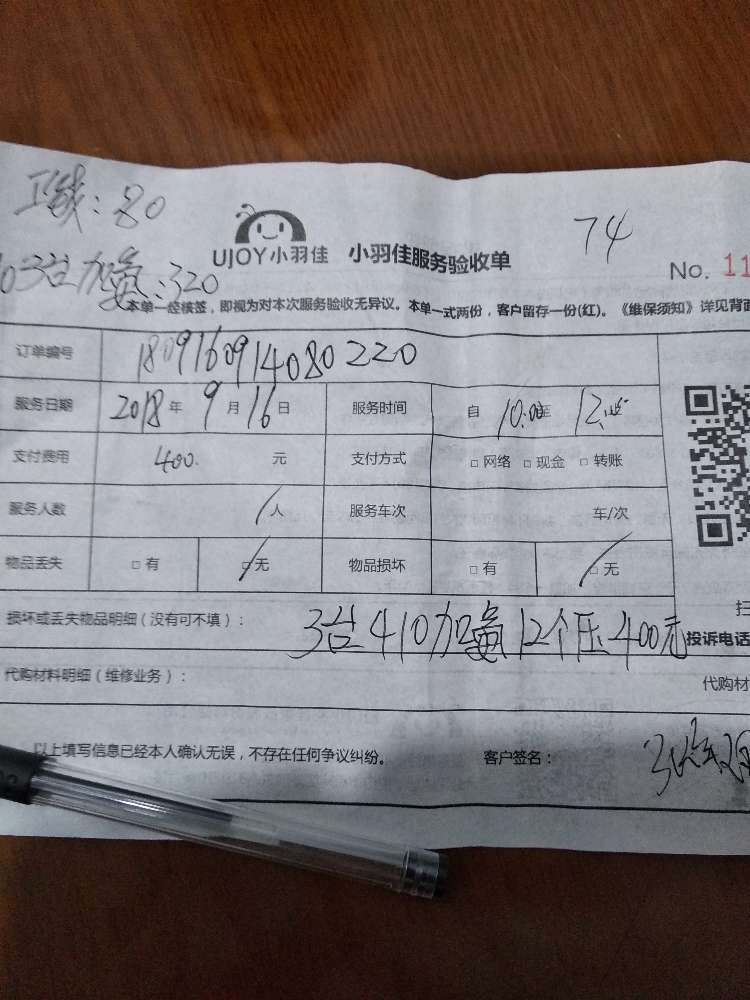 正钱:80
74
UJOY小羽佳 小羽佳服务验收单
No. 11
3台加氟:320
本单一经核签,即视为对本次服务验收无异议。本单一式两份,客户留存一份(红)。《维保须知》详见背面
订单编号 1809160914080220
服务日期 2018年9月16日 服务时间 自10:00至12:
支付费用 400. 元 支付方式 □网络 □现金 □转账
服务人数 1人 服务车次 车/次
物品丢失 □有 □无 物品损坏 □有 □无
损坏或丢失物品明细(没有可不填): 3台410加氟12个压400元
扫
投诉电话
代购材料明细(维修业务): 代购材
以上填写信息已经本人确认无误,不存在任何争议纠纷。 客户签名: